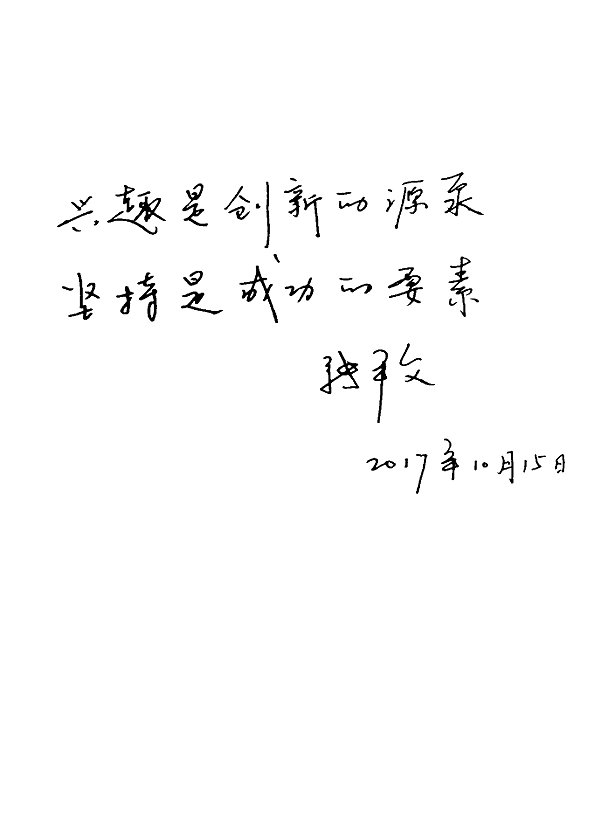 兴趣是创新的源泉
坚持是成功的要素
张平文
2017年10月15日